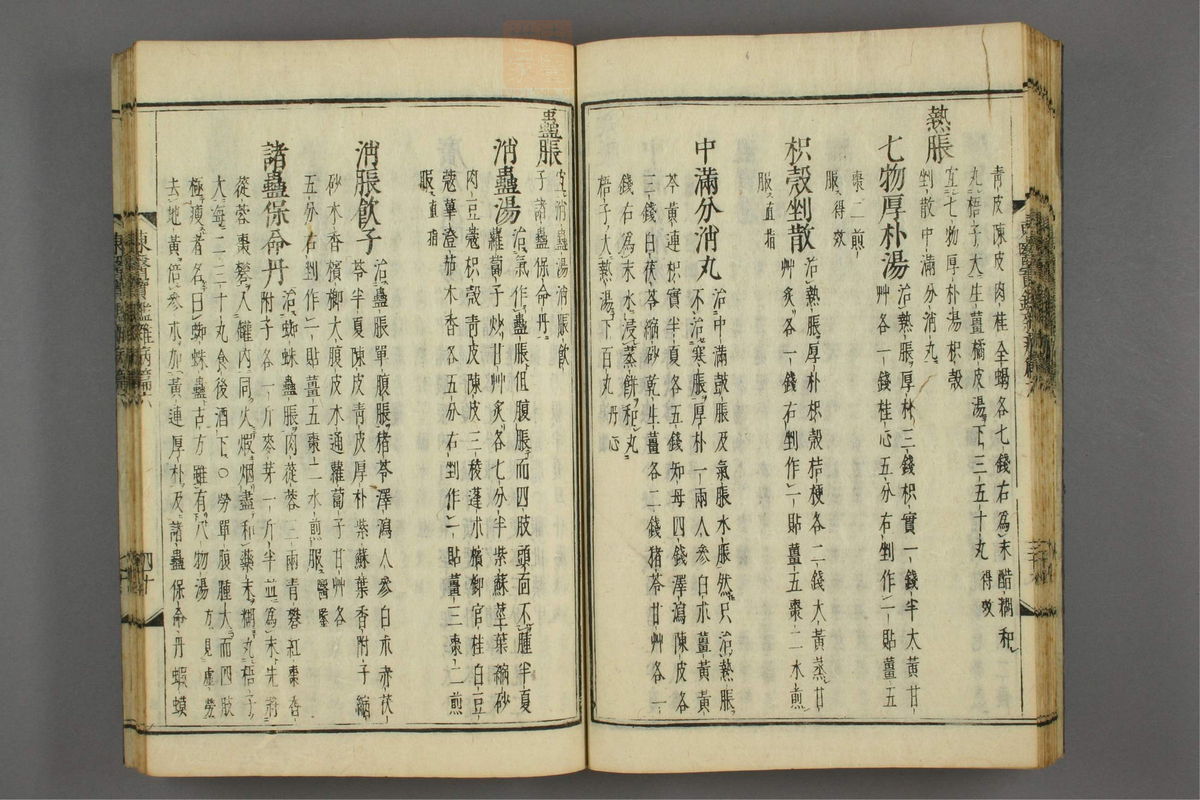 青皮陳皮肉桂全蝎各七錢右爲末醋糊和
丸梧子大生薑橘皮湯下三五十丸得效
熱脹
宜七物厚朴湯枳殼
剉散中滿分消丸
七物厚朴湯
治熱脹厚朴三錢枳實一錢半大黃甘
艸各一錢桂心五分右剉作一貼薑五
棗二煎
服得效
枳殼剉散
治熱脹厚朴枳殼桔梗各二錢大黃蒸甘
艸炙各一錢右剉作一貼薑五棗二水煎
服直指
中滿分消丸
治中滿鼓脹及氣脹水脹然只治熱脹
不治寒脹厚朴一兩人參白朮薑黃黃
芩黃連枳實半夏各五錢知母四錢澤瀉陳皮各
三錢白茯苓縮砂乾生薑各二錢猪苓甘艸各一
錢右爲末水浸蒸餠和丸
梧子大熱湯下百丸丹心
蠱脹
宜消蠱湯消脹飮
子諸蠱保命丹
消蠱湯
治氣作蠱脹但腹脹而四肢頭面不腫半夏
蘿葍子炒甘艸炙各七分半紫蘇莖葉縮砂
肉豆蔲枳殼靑皮陳皮三稜蓬朮檳榔官桂白豆
蔲蓽澄茄木香各五分右剉作一貼薑三棗二煎
服直指
消脹飮子
治蠱脹單腹脹猪苓澤瀉人參白朮赤茯
苓半夏陳皮靑皮厚朴紫蘇葉香附子縮
砂木香檳榔大腹皮木通蘿葍子甘艸各
五分右剉作一貼薑五棗二水煎服醫鑑
諸蠱保命丹
治蜘蛛蠱脹肉蓯蓉三兩青礬紅棗香
附子各一斤麥芽一斤半並爲末先將
蓯蓉棗礬入罐內同火煆烟盡和藥末糊丸梧子
大每二三十丸食後酒下○勞單腹腫大而四肢
極瘦者名曰蜘蛛蠱古方雖有八物湯方見虛勞
去地黃倍參朮加黃連厚朴及諸蠱保命丹蝦蟆
東醫寶鑑雜病篇六
四十